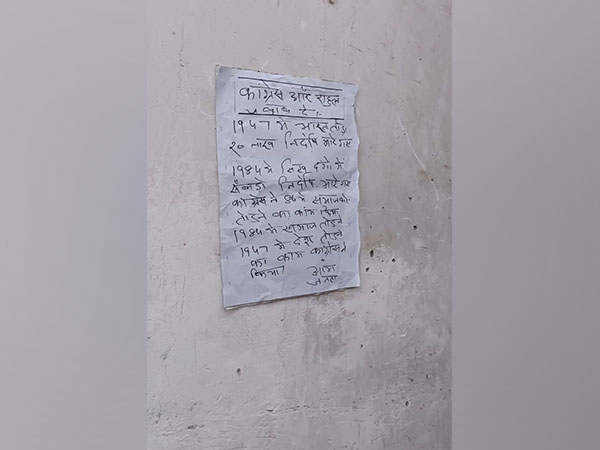 कांग्रेस और राहुल
जवाब दे।
1947 मे भारत तोड़ा
20 लाख निर्दोष मारे गए
1984 मे सिख दंगो में
सैंकड़ो निर्दोष मारे गए
कांग्रेस ने 84 मे समाज को
तोड़ने का काम किया
1984 मे समाज तोड़ने
1947 मे देश तोड़ने
का काम कांग्रेस ने
किया।
आम
जनता